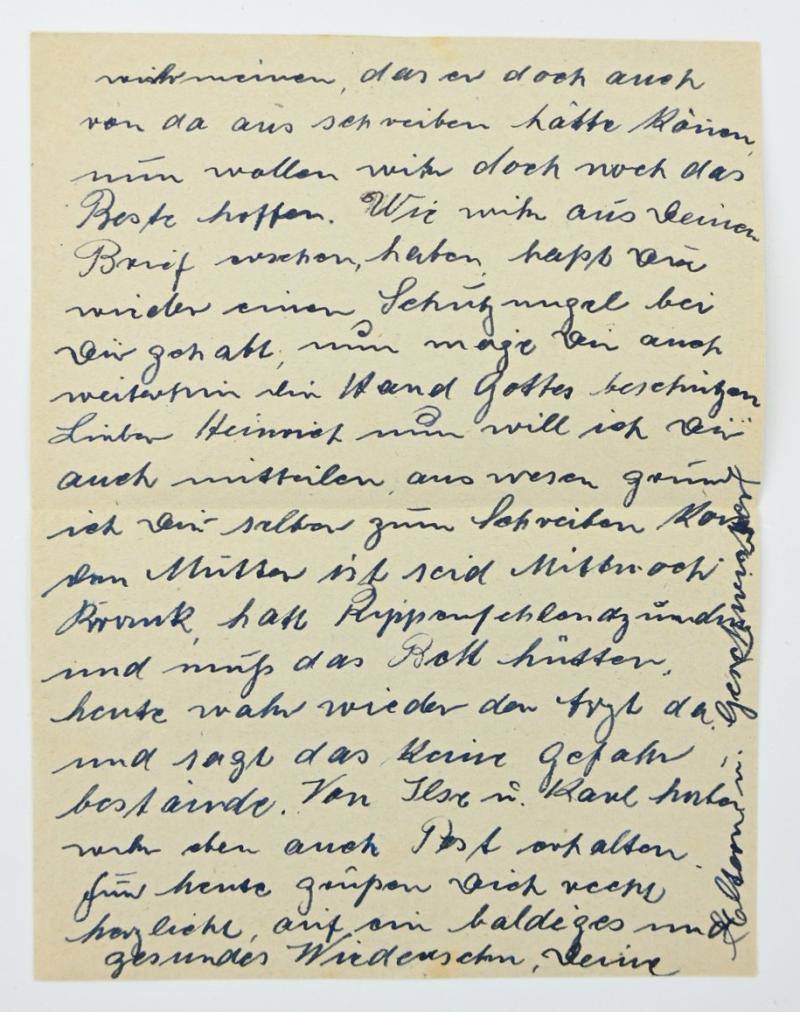 wihr meinen, das er doch auch
von da aus schreiben hätte könen,
nun wollen wihr doch noch das
Beste hoffen. Wie wihr aus Deinen
Brief ersehen, haben, hapst Du
wieder einen Schutzengel bei
Dir gehabt, nun möge Dir auch
weiterhin die Hand Gottes beschützen
Lieber Heinrich nun will ich Dir
auch mitteilen, aus wesen grund
ich Dir selber zum Schreiben kom
den Mutter ist seid Mittwoch
Krank, hatt Rippenfehlendzundu
und muß das Bett hütten,
heute wahr wieder der Arzt da,
und sagt das keine Gefahr
bestände. Von Ilse u. Karl haben
wihr eben auch Post erhalten.
für heute grüßen Dich recht
herzlicht, auf ein baldiges und
gesundes Wiedersehn, Deine
Eltern u. Geschwister